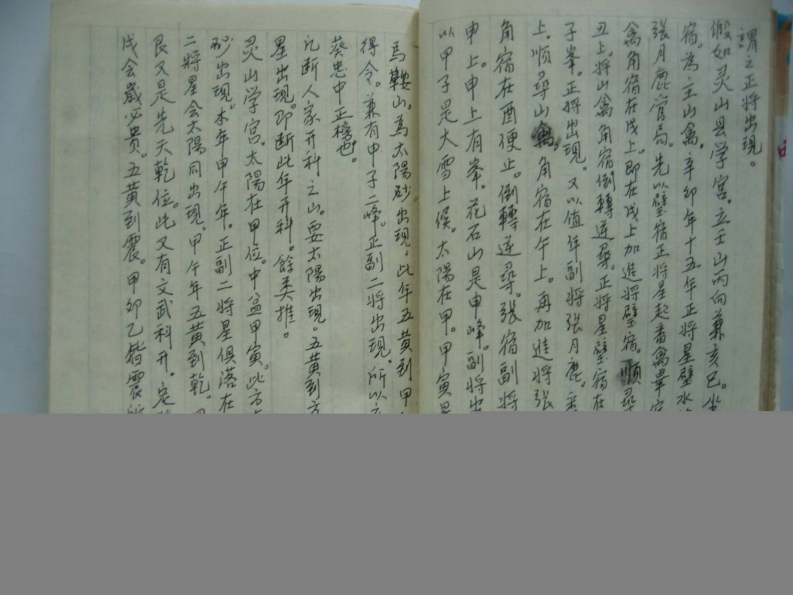 謂之正將出現。
假如灵山县学宫。立壬山丙向兼亥巳。坐
宿。為主山禽。辛卯年十五年正將星壁水
張月鹿管局。先以壁宿正將星起番禽畢宿
禽角宿在戌上。即在戌上加進將壁宿。順尋
丑上。將山禽角宿倒轉逆尋。正將星壁宿在
子峯。正將出現。又以值年副將張月鹿。
上。順尋山禽角宿在午上。再加進將張
角宿在酉便止。倒轉逆尋。張宿副將
申上。申上有峯。花石山是申峰。副將出
以甲子是大雪上候。太陽在甲。甲寅
為鞍山。為太陽砂出現。此年五黄到甲
得令。兼有甲子二峰。正副二將出現。所以
葵忠中正榜也。
凡断人家开科之山。要太陽出現。五黄到方
星出現。即断此年开科。餘类推。
灵山学宫。太陽在甲位中盆甲寅。此方
砂出現。本年甲午年。正副二將星俱落在
二將星会太陽同出現。甲午年五黄到乾。
艮又是先天乾位。此又有文武科开。定
戌会歲必贵。五黄到震。甲卯乙皆震